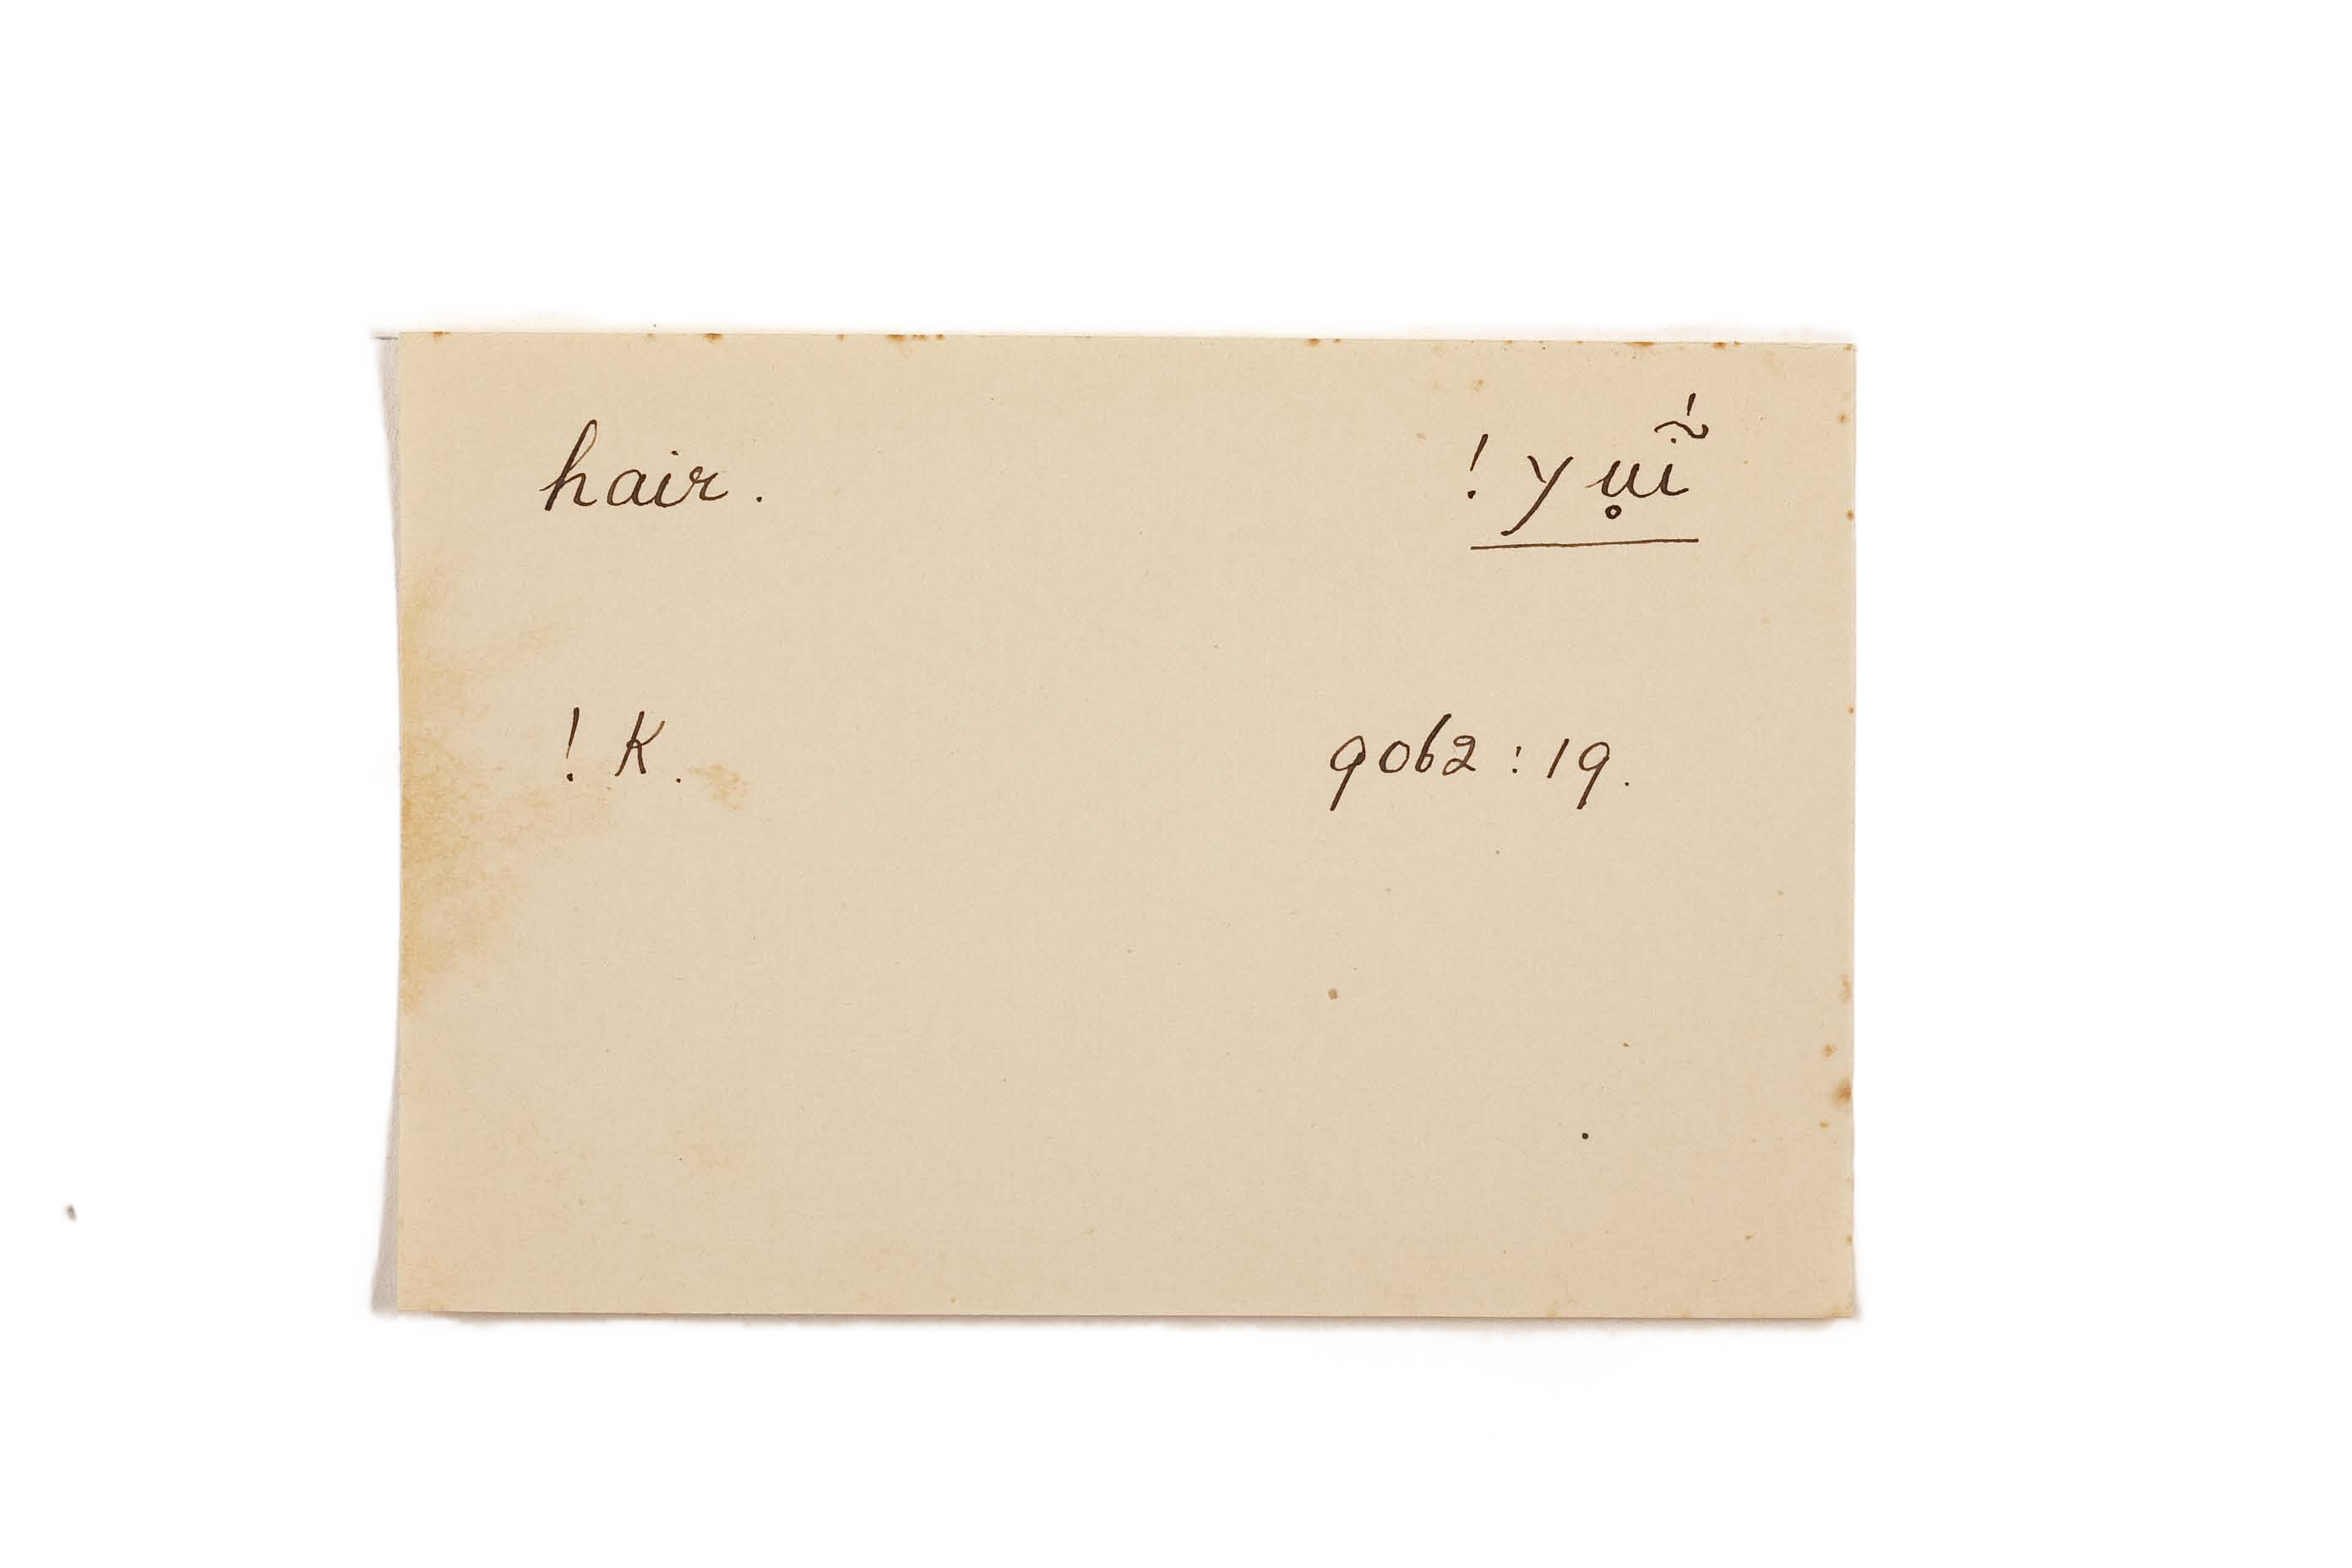 hair. !yu̥ĩ́
! K. 9062 : 19.